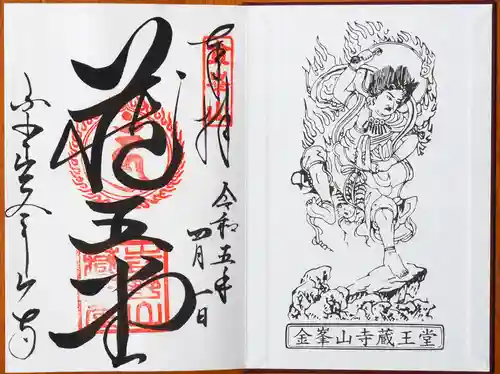 奉拝
令和五年
四月一日
蔵王堂
金峯山寺
金峯山寺蔵王堂